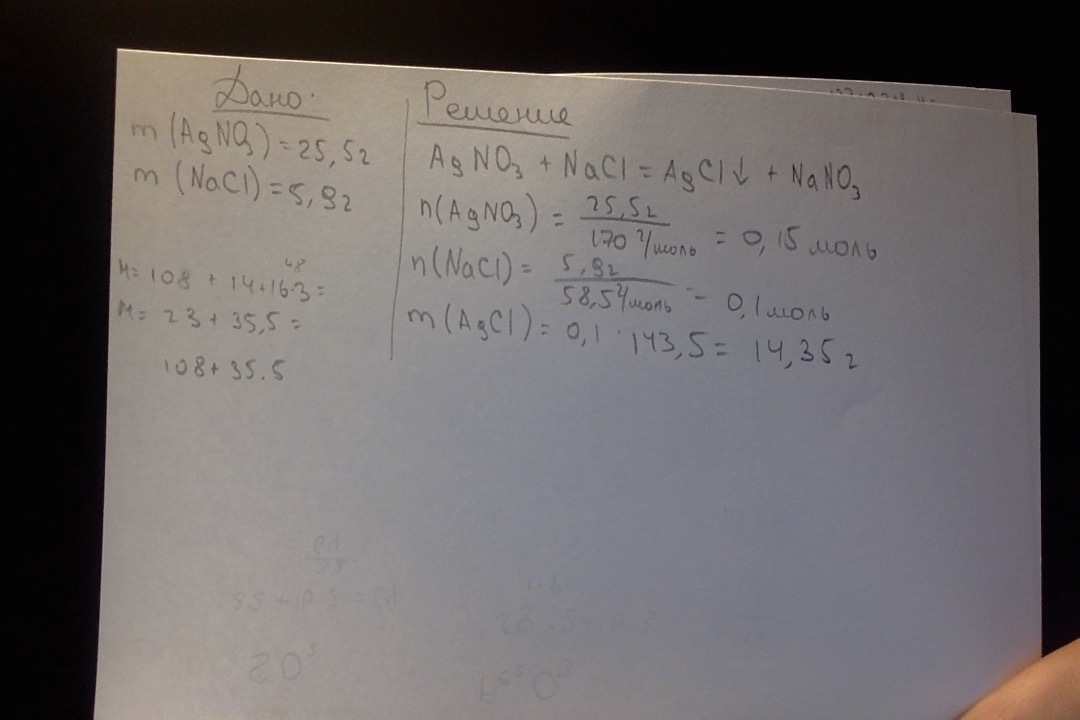 Дано:
m (AgNO3) = 25,5г
m (NaCl) = 5,9г
48
M= 108 + 14+16·3=
M= 23 + 35,5 =
108+35.5
Решение
AgNO3 + NaCl = AgCl↓ + NaNO3
n(AgNO3) = 25,5г / 170 г/моль = 0,15 моль
n(NaCl) = 5,9г / 58,5 г/моль = 0,1 моль
m(AgCl) = 0,1 · 143,5 = 14,35г